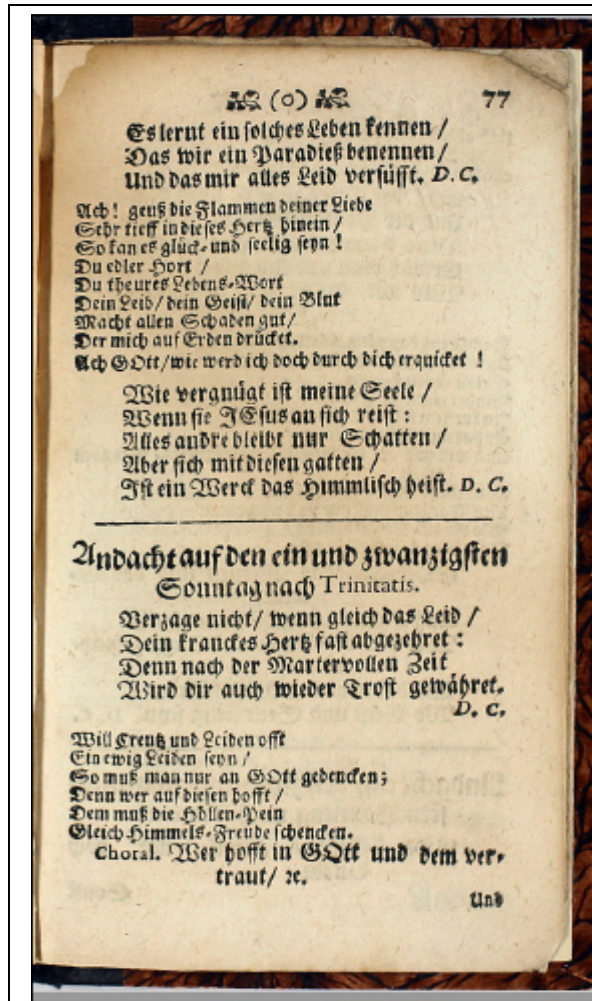 (o) 77
Es lernt ein solches Leben kennen /
Das wir ein Paradieß benennen /
Und das mir alles Leid versüsst. D. C.
Ach! geuß die Flammen deiner Liebe
Sehr tieff in dieses Hertz hinein /
So kan es glück- und seelig seyn !
Du edler Hort /
Du theures Lebens-Wort
Dein Leib / dein Geist / dein Blut
Macht allen Schaden gut /
Der mich auf Erden drücket.
Ach GOtt / wie werd ich doch durch dich erquicket !
Wie vergnügt ist meine Seele /
Wenn sie JEsus an sich reist :
Alles andre bleibt nur Schatten /
Aber sich mit diesen gatten /
Ist ein Werck das Himmlisch heist. D. C.
Andacht auf den ein und zwanzigsten
Sonntag nach Trinitatis.
Verzage nicht / wenn gleich das Leid /
Dein kranckes Hertz fast abgezehret :
Denn nach der Martervollen Zeit
Wird dir auch wieder Trost gewähret.
D. C.
Will Creutz und Leiden offt
Ein ewig Leiden seyn /
So muß man nur an GOtt gedencken;
Denn wer auf diesen hofft /
Dem muß die Höllen-Pein
Gleich Himmels-Freude schencken.
Choral. Wer hofft in GOtt und dem ver-
traut / ꝛc.
Und